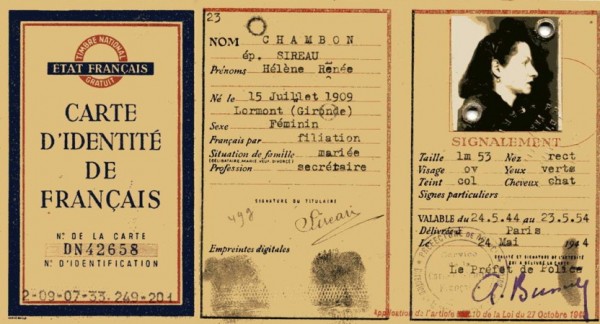 TIMBRE NATIONAL
ETAT FRANÇAIS
GRATUIT
CARTE
D'IDENTITÉ
DE
FRANÇAIS
N° DE LA CARTE
DN42658
N° D'IDENTIFICATION
2-09-07-33.249-201
23
NOM CHAMBON
ép. SIREAU
Prénoms Hélène Renée
Né le 15 Juillet 1909
Lormont (Gironde)
Sexe Féminin
Français par filiation
Situation de famille mariée
(CÉLIBATAIRE, MARIÉ, VEUF, DIVORCÉ)
Profession secrétaire
SIGNATURE DU TITULAIRE
Sireau
Empreintes digitales
SIGNALEMENT
Taille 1m 53 Nez rect
Visage ov Yeux verts
Teint col Cheveux chat
Signes particuliers
VALABLE DU 24.5.44 AU 23.5.54
Délivrée à Paris
Le 24 Mai 1944
Le Préfet de Police
Application de l'article 10 de la Loi du 27 Octobre